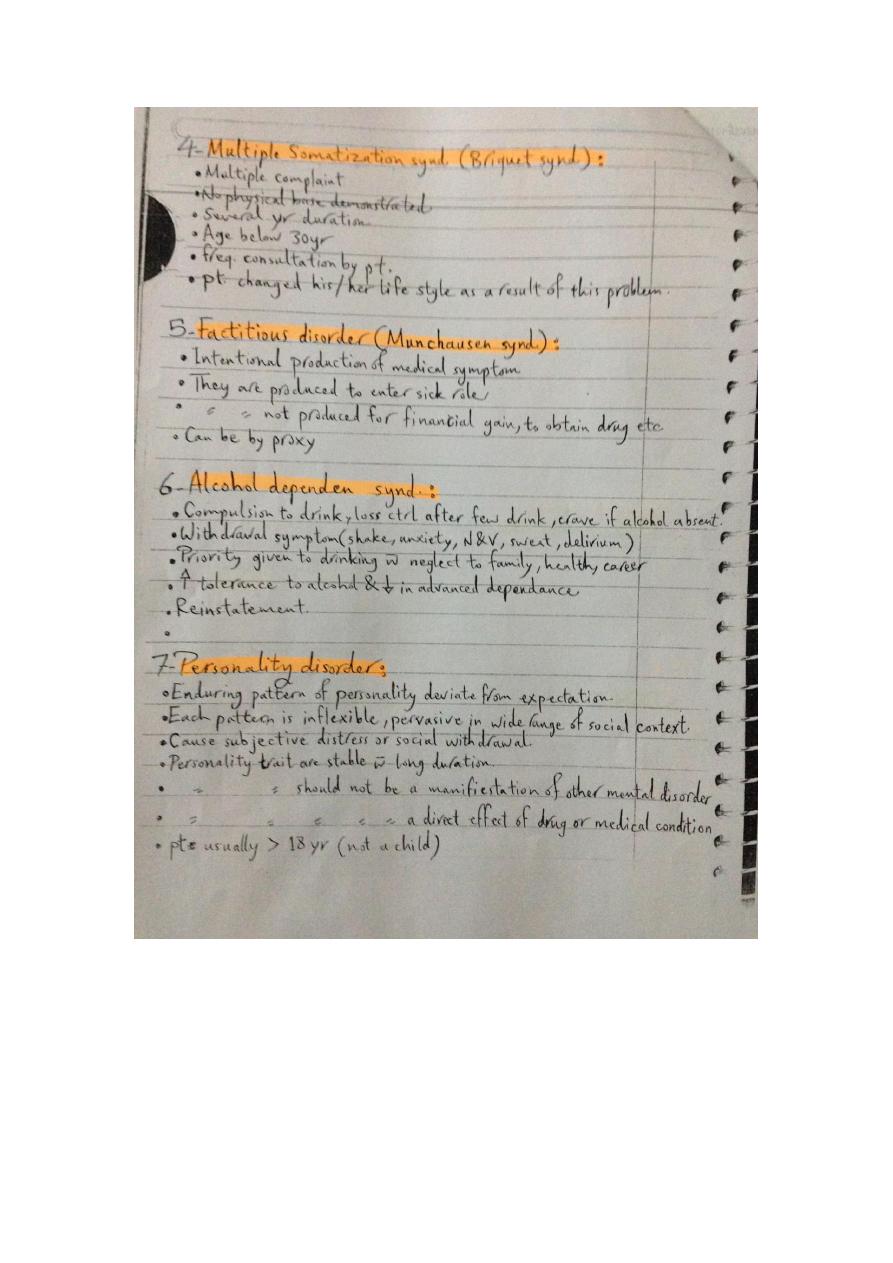 4- Multiple Somatization synd. (Briquet synd.):
• Multiple complaint
• No physical base demonstrated
• Several yr duration
• Age below 30yr
• freq. consultation by pt.
• pt. changed his/her life style as a result of this problem.
5- Factitious disorder (Munchausen synd.):
• Intentional production of medical symptom
• They are produced to enter sick role
• 〃 〃 not produced for financial gain, to obtain drug etc
• Can be by proxy
6- Alcohol dependen synd.:
• Compulsion to drink, loss ctrl after few drink, crave if alcohol absent.
• Withdrawal symptom (shake, anxiety, N&V, sweat, delirium)
• Priority given to drinking w̄ neglect to family, healthy, career
• ↑ tolerance to alcohol & ↓ in advanced dependance
• Reinstatement.
•
7- Personality disorder:
• Enduring pattern of personality deviate from expectation.
• Each pattern is inflexible, pervasive in wide range of social context.
• Cause subjective distress or social withdrawal.
• Personality trait are stable w̄ long duration.
• 〃 〃 should not be a manifiestation of other mental disorder
• 〃 〃 〃 〃 〃 a direct effect of drug or medical condition
• pts usually > 18 yr (not a child)